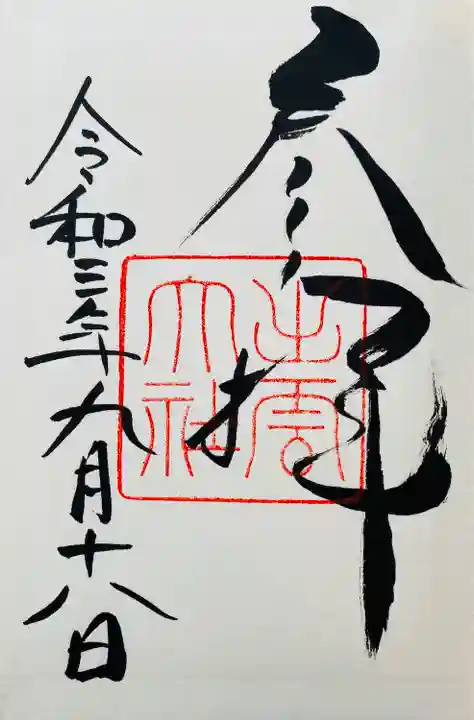 参拝
出雲
大社
令和三年九月十八日